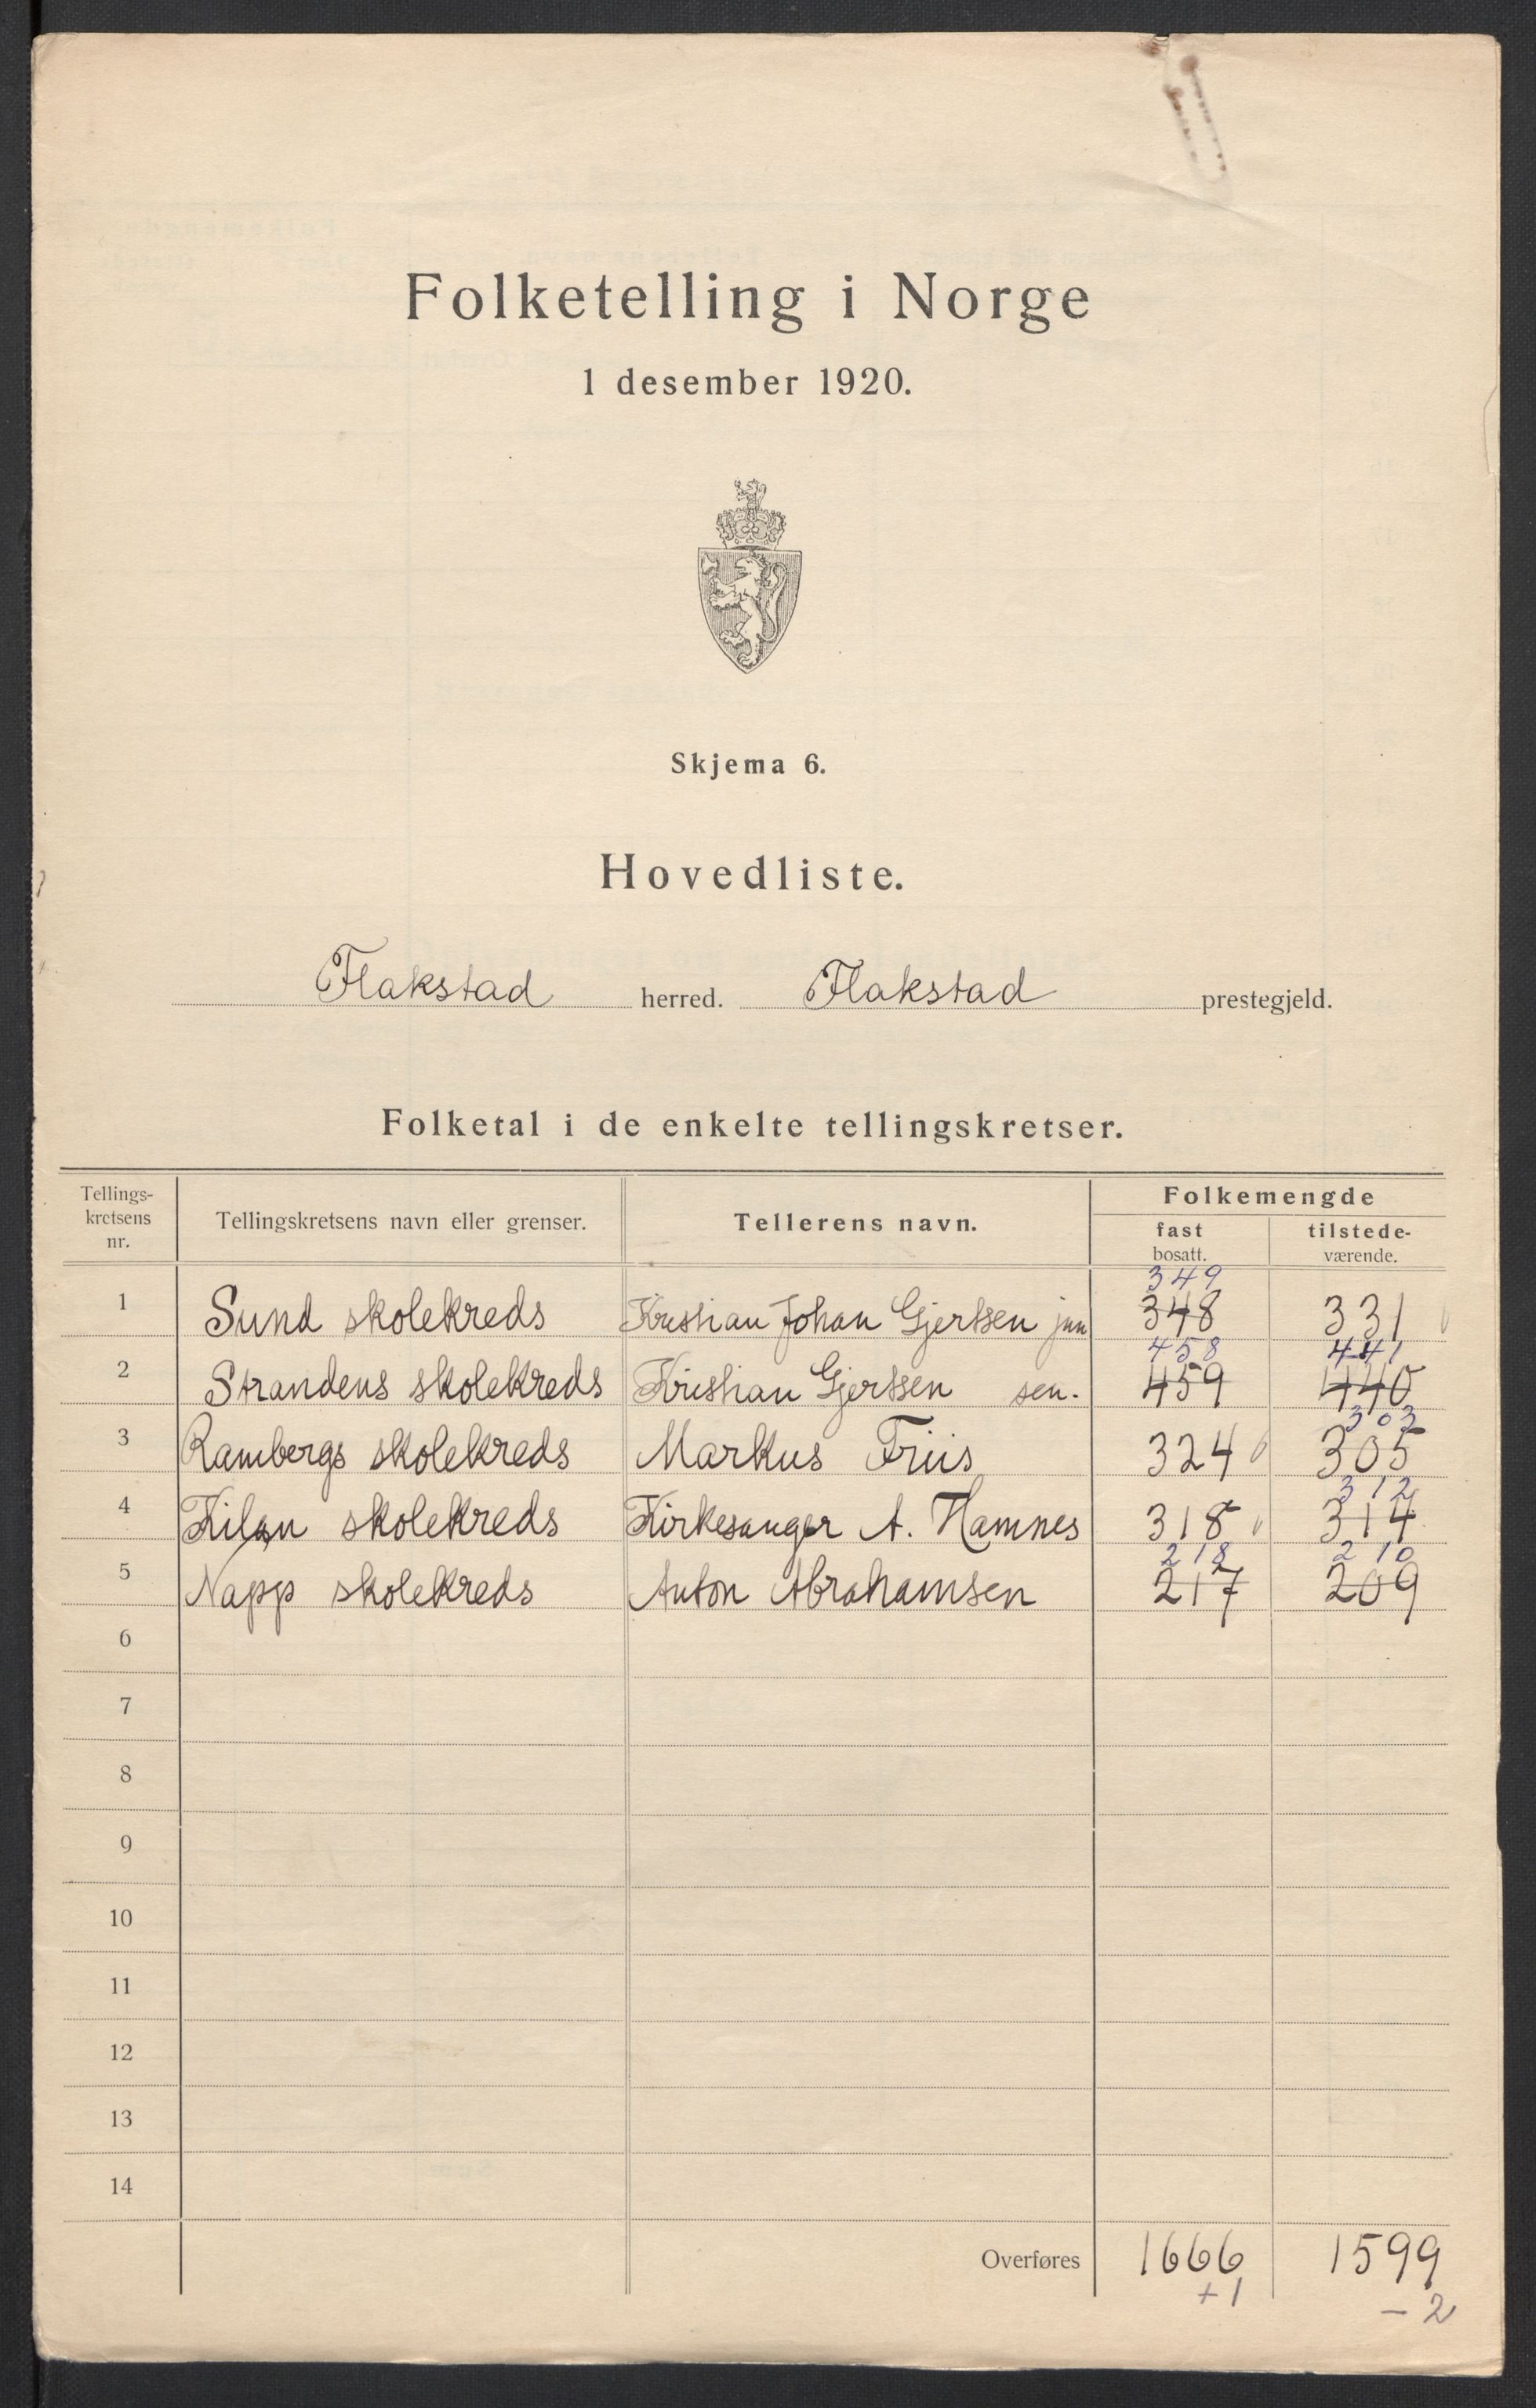 Folketelling i Norge
1 desember 1920.
Skjema 6.
Hovedliste.
Flakstad herred. Flakstad prestegjeld.
Folketal i de enkelte tellingskretser.
Tellings-
kretsens
nr.
Tellingskretsens navn eller grenser.
Tellerens navn.
Folkemengde
fast
bosatt.
tilstede-
værende.
349
1 Sund skolekreds Kristian Johan Gjertsen jun 348 331
458 441
2 Strandens skolekreds Kristian Gjertsen sen. 459 440
303
3 Rambergs skolekreds Markus Friis 324 305
312
4 Kilan skolekreds Kirkesanger A. Hamnes 318 314
218 210
5 Napp skolekreds Anton Abrahamsen 217 209
6
7
8
9
10
11
12
13
14
Overføres 1666 1599
+1 -2